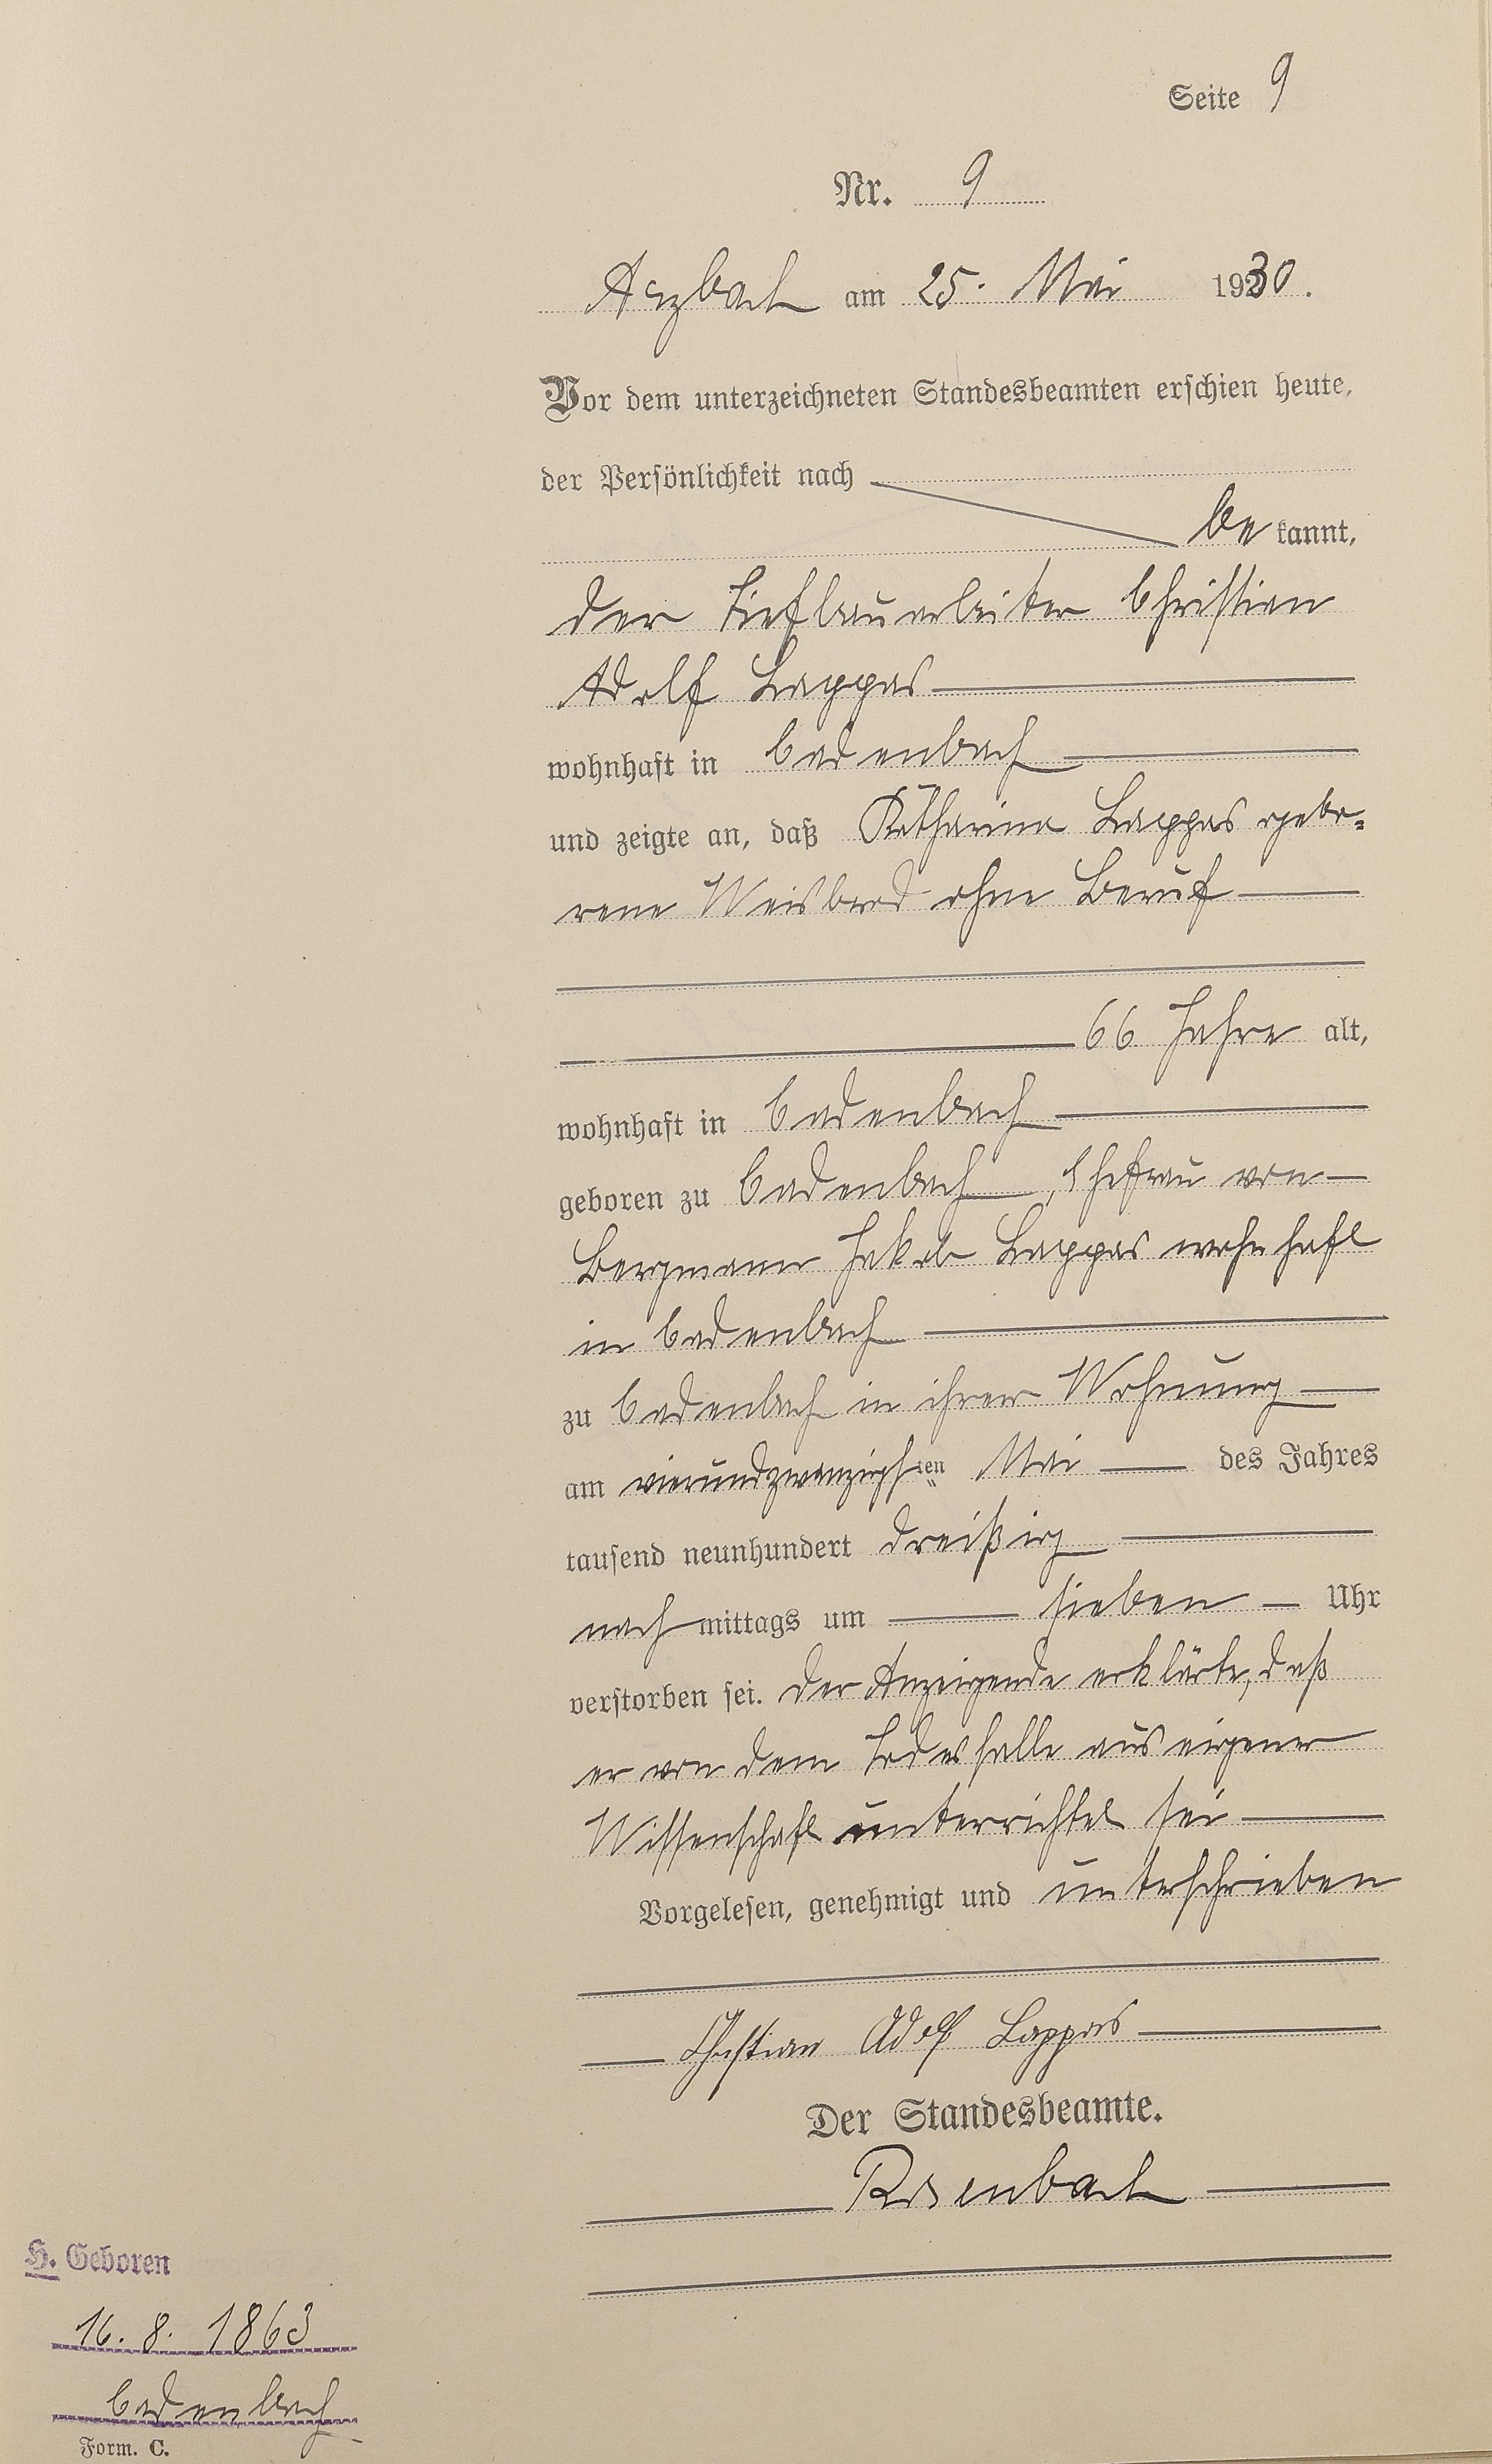 Seite 9
Nr. 9
Arzbach am 25. Mai 1930.
Vor dem unterzeichneten Standesbeamten erschien heute,
der Persönlichkeit nach
be kannt,
der Tiefbauarbeiter Christian
Adolf Lappas
wohnhaft in Cadenbach
und zeigte an, daß Katharina Lappas gebo-
rene Weisbrod ohne Beruf
66 Jahre alt,
wohnhaft in Cadenbach
geboren zu Cadenbach, Ehefrau von
Bergmann Jakob Lappas wohnhaft
in Cadenbach
zu Cadenbach in ihrer Wohnung
am vierundzwanzigsten Mai des Jahres
tausend neunhundert dreißig
nach mittags um sieben Uhr
verstorben sei. Der Anzeigende erklärte, daß
er von dem Todesfalle aus eigener
Wissenschaft unterrichtet sei
Vorgelesen, genehmigt und unterschrieben
Christian Adolf Lappas
Der Standesbeamte.
Rosenbach
H. Geboren
16. 8. 1863
Cadenbach
Form. C.